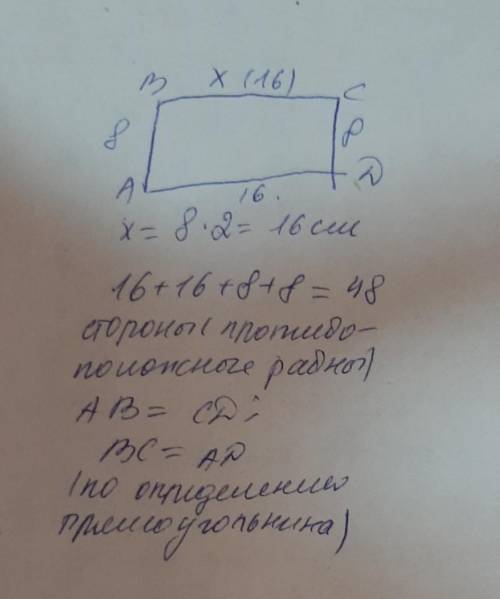 B X (16) C
8 8
A 16. D
x = 8 · 2 = 16 см
16 + 16 + 8 + 8 = 48
стороны (противо-
положные равны)
AB = CD;
BC = AD
(по определению
прямоугольника)